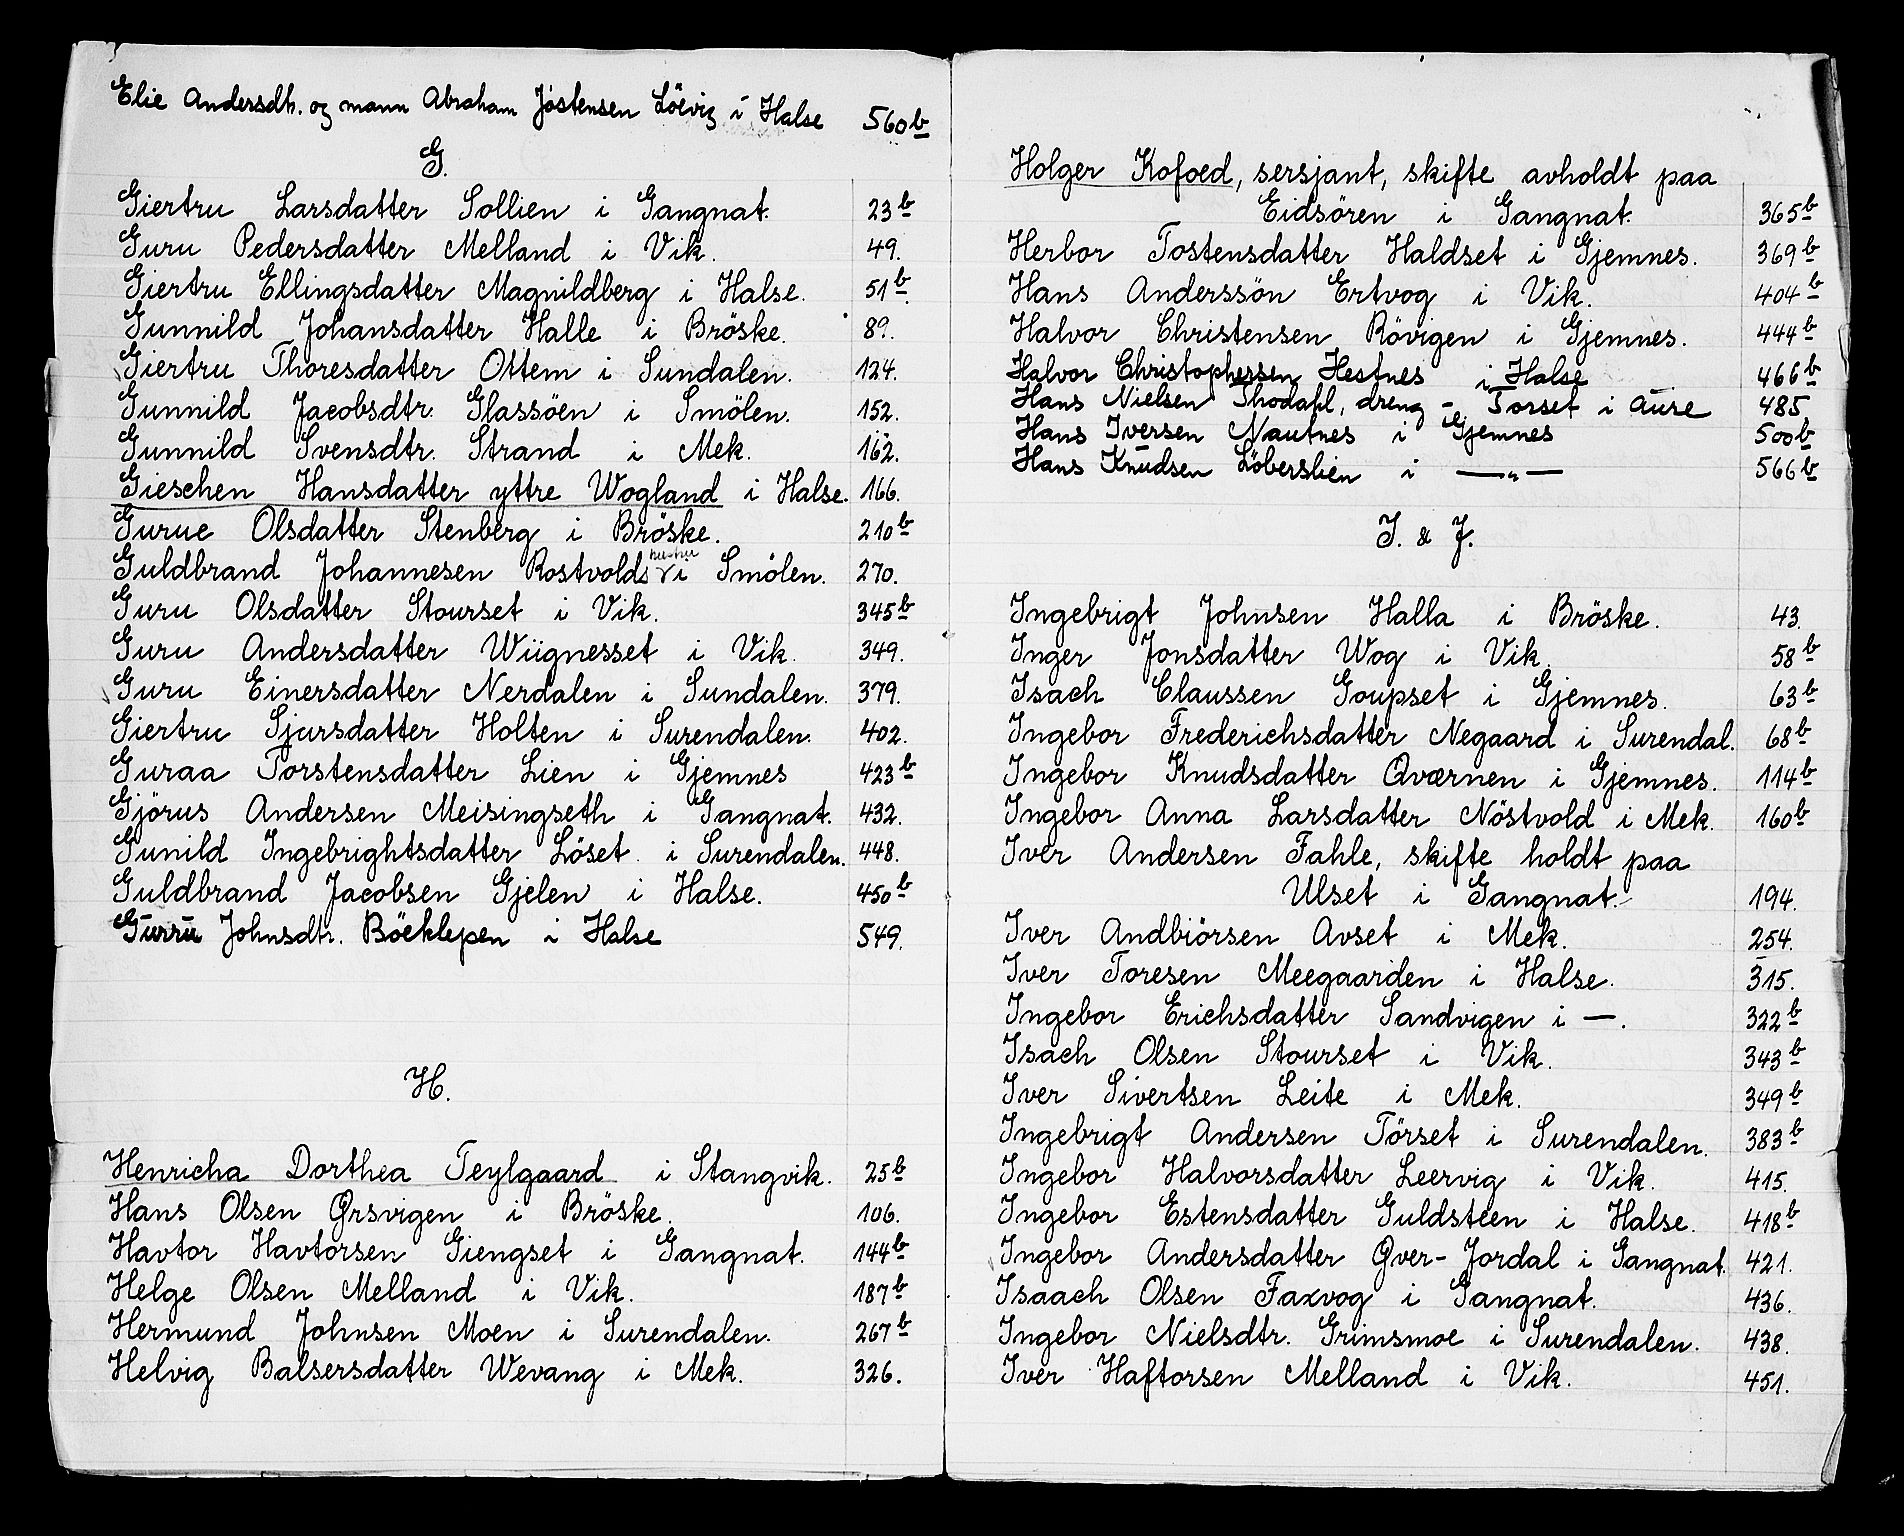 Elie Andersdtr. og mann Abraham Jostensen Löevig i Halse 560 b
G.
Giertru Larsdatter Sollien i Gangnat. 23 b
Guru Pedersdatter Melland i Vik. 49.
Giertru Ellingsdatter Magnildberg i Halse. 51 b.
Gunnild Johansdatter Halle i Bröske. 89.
Giertru Thoresdatter Ottem i Sundalen. 124.
Gunnild Jacobsdtr. Glassöen i Smölen. 152.
Gunnild Svensdtr. Strand i Mek. 162.
Gieschen Hansdatter yttre Wogland i Halse. 166.
Gurue Olsdatter Stenberg i Bröske. 210 b
Guldbrand Johannesen Rostvolds hustru i Smölen. 270.
Guru Olsdatter Stourset i Vik. 345 b
Guru Andersdatter Wiignesset i Vik. 349.
Guru Einersdatter Nerdalen i Sundalen. 379.
Giertru Sjursdatter Holten i Surendalen. 402.
Guraa Torstensdatter Lien i Gjemnes 423 b
Gjörus Andersen Meisingseth i Gangnat. 432.
Gunild Ingebrightsdatter Löset i Surendalen. 448.
Guldbrand Jacobsen Gjelen i Halse. 450 b
Gurru Johnsdtr. Böeklepen i Halse 549.
H.
Henricha Dorthea Teylgaard i Stangvik. 25 b
Hans Olsen Ørsvigen i Bröske. 106.
Havtor Havtorsen Giengset i Gangnat. 144 b
Helge Olsen Melland i Vik. 187 b
Hermund Johnsen Moen i Surendalen. 267 b
Helvig Balsersdatter Wevang i Mek. 326.
Holger Kofoed, sersjant, skifte avholdt paa
Eidsören i Gangnat. 365 b
Herbor Tostensdatter Haldset i Gjemnes. 369 b
Hans Anderssön Ertvog i Vik. 404 b
Halvor Christensen Rövigen i Gjemnes. 444 b
Halvor Christophersen Hestnes i Halse 466 b
Hans Nielsen Thodahl, dreng - Torset i Aure 485.
Hans Iversen Nautnes i Gjemnes 500 b
Hans Knudsen Löberslien i —"— 566 b
I. & J.
Ingebrigt Johnsen Halla i Bröske. 43.
Inger Jonsdatter Wog i Vik. 58 b
Isach Claussen Goupset i Gjemnes. 63 b
Ingebor Frederichsdatter Negaard i Surendal. 68 b
Ingebor Knudsdatter Qværnen i Gjemnes. 114 b
Ingebor Anna Larsdatter Nöstvold i Mek. 160 b
Iver Andersen Fahle, skifte holdt paa
Ulset i Gangnat. 194.
Iver Andbiörsen Avset i Mek. 254.
Iver Toresen Meegaarden i Halse. 315.
Ingebor Erichsdatter Sandvigen i —. 322 b
Isach Olsen Stourset i Vik. 343 b
Iver Sivertsen Leite i Mek. 349 b
Ingebrigt Andersen Törset i Surendalen. 383 b
Ingebor Halvorsdatter Leervig i Vik. 415.
Ingebor Estensdatter Guldsteen i Halse. 418 b
Ingebor Andersdatter Øver-Jordal i Gangnat. 421.
Isaach Olsen Faxvog i Gangnat. 436.
Ingebor Nielsdtr. Grimsmoe i Surendalen. 438.
Iver Haftorsen Melland i Vik. 451.